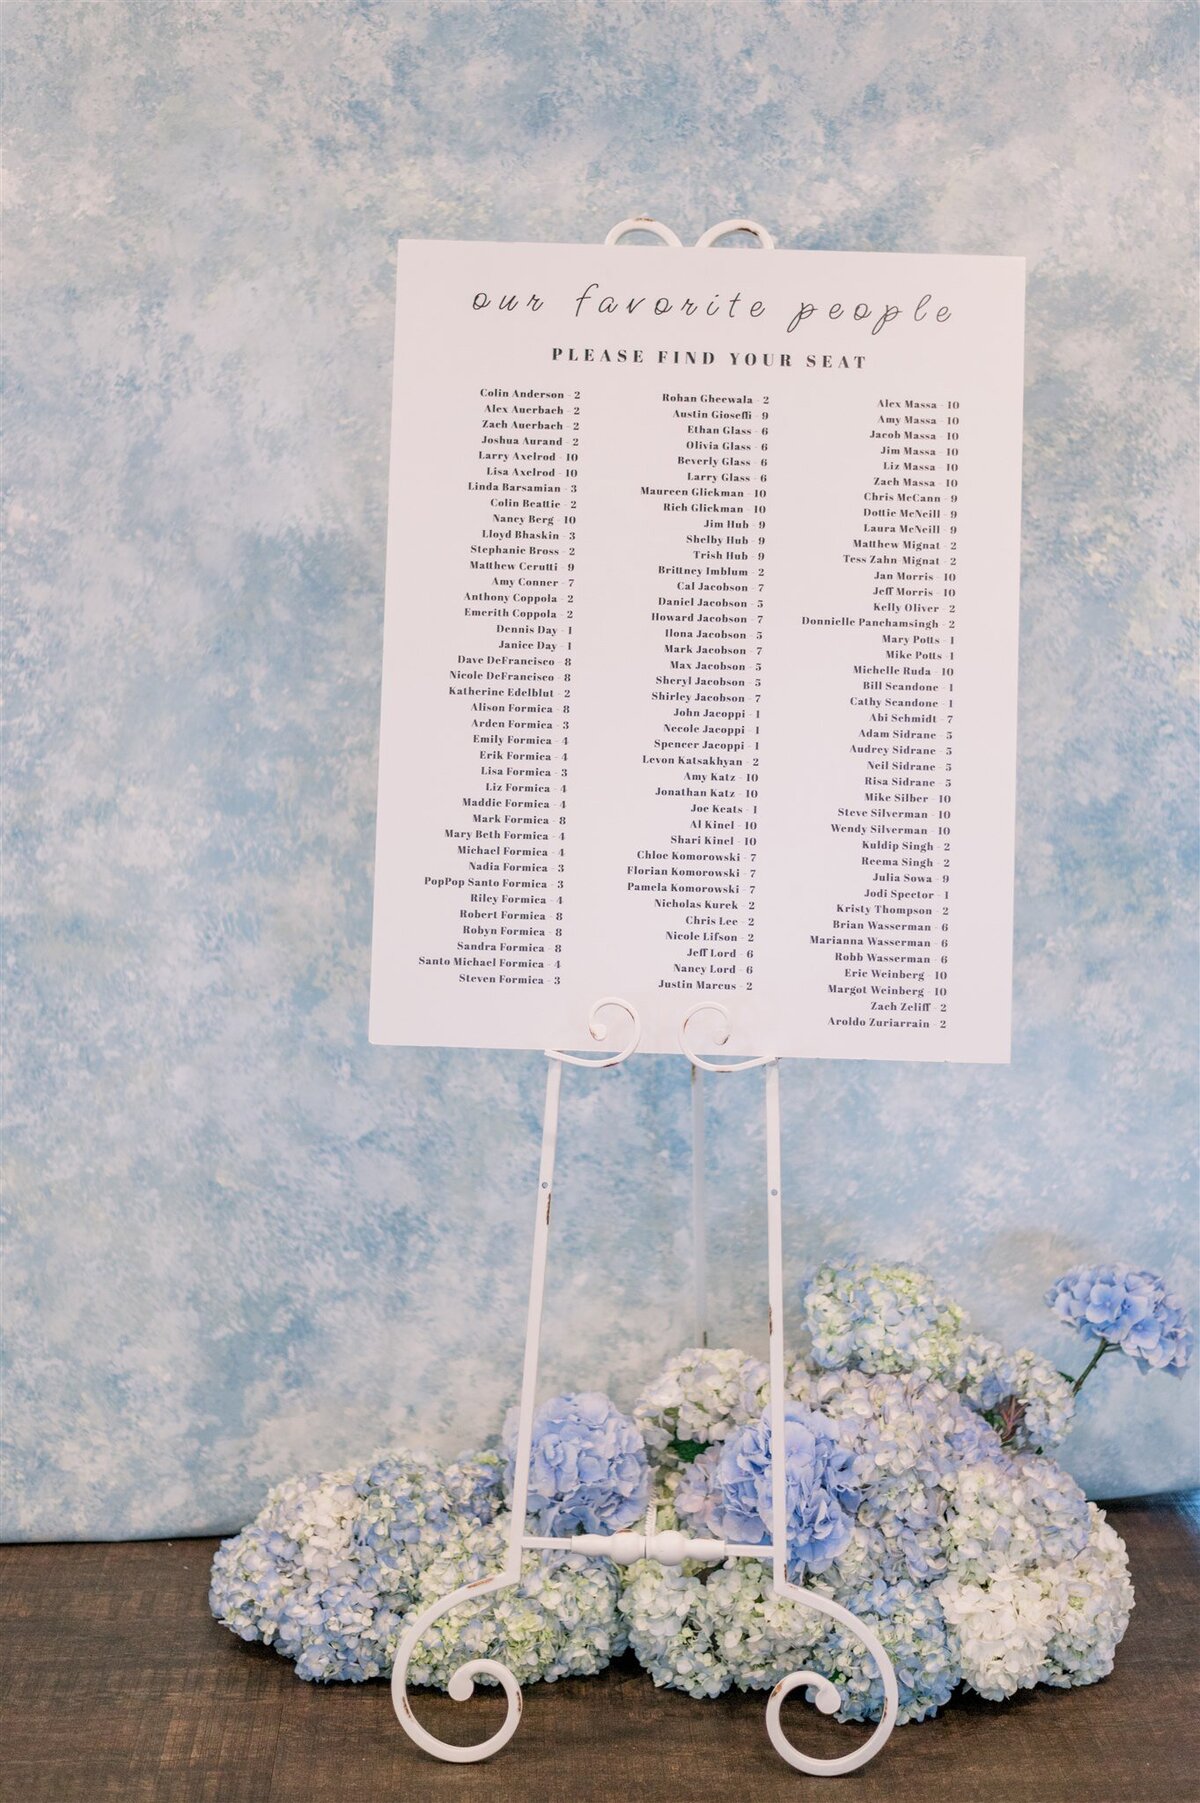 our favorite people
PLEASE FIND YOUR SEAT
Colin Anderson - 2
Alex Auerbach - 2
Zach Auerbach - 2
Joshua Aurand - 2
Larry Axelrod - 10
Lisa Axelrod - 10
Linda Barsamian - 3
Colin Beattie - 2
Nancy Berg - 10
Lloyd Bhaskin - 3
Stephanie Bross - 2
Matthew Cerutti - 9
Amy Conner - 7
Anthony Coppola - 2
Emerith Coppola - 2
Dennis Day - 1
Janice Day - 1
Dave DeFrancisco - 8
Nicole DeFrancisco - 8
Katherine Edelblut - 2
Alison Formica - 8
Arden Formica - 3
Emily Formica - 4
Erik Formica - 4
Lisa Formica - 3
Liz Formica - 4
Maddie Formica - 4
Mark Formica - 8
Mary Beth Formica - 4
Michael Formica - 4
Nadia Formica - 3
PopPop Santo Formica - 3
Riley Formica - 4
Robert Formica - 8
Robyn Formica - 8
Sandra Formica - 8
Santo Michael Formica - 4
Steven Formica - 3
Rohan Gheewala - 2
Austin Gioseffi - 9
Ethan Glass - 6
Olivia Glass - 6
Beverly Glass - 6
Larry Glass - 6
Maureen Glickman - 10
Rich Glickman - 10
Jim Hub - 9
Shelby Hub - 9
Trish Hub - 9
Brittney Imblum - 2
Cal Jacobson - 7
Daniel Jacobson - 5
Howard Jacobson - 7
Ilona Jacobson - 5
Mark Jacobson - 7
Max Jacobson - 5
Sheryl Jacobson - 5
Shirley Jacobson - 7
John Jacoppi - 1
Necole Jacoppi - 1
Spencer Jacoppi - 1
Levon Katsakhyan - 2
Amy Katz - 10
Jonathan Katz - 10
Joe Keats - 1
Al Kinel - 10
Shari Kinel - 10
Chloe Komorowski - 7
Florian Komorowski - 7
Pamela Komorowski - 7
Nicholas Kurek - 2
Chris Lee - 2
Nicole Lifson - 2
Jeff Lord - 6
Nancy Lord - 6
Justin Marcus - 2
Alex Massa - 10
Amy Massa - 10
Jacob Massa - 10
Jim Massa - 10
Liz Massa - 10
Zach Massa - 10
Chris McCann - 9
Dottie McNeill - 9
Laura McNeill - 9
Matthew Mignat - 2
Tess Zahn-Mignat - 2
Jan Morris - 10
Jeff Morris - 10
Kelly Oliver - 2
Donnielle Panchamsingh - 2
Mary Potts - 1
Mike Potts - 1
Michelle Ruda - 10
Bill Scandone - 1
Cathy Scandone - 1
Abi Schmidt - 7
Adam Sidrane - 5
Audrey Sidrane - 5
Neil Sidrane - 5
Risa Sidrane - 5
Mike Silber - 10
Steve Silverman - 10
Wendy Silverman - 10
Kuldip Singh - 2
Reema Singh - 2
Julia Sowa - 9
Jodi Spector - 1
Kristy Thompson - 2
Brian Wasserman - 6
Marianna Wasserman - 6
Robb Wasserman - 6
Eric Weinberg - 10
Margot Weinberg - 10
Zach Zeliff - 2
Aroldo Zuriarrain - 2